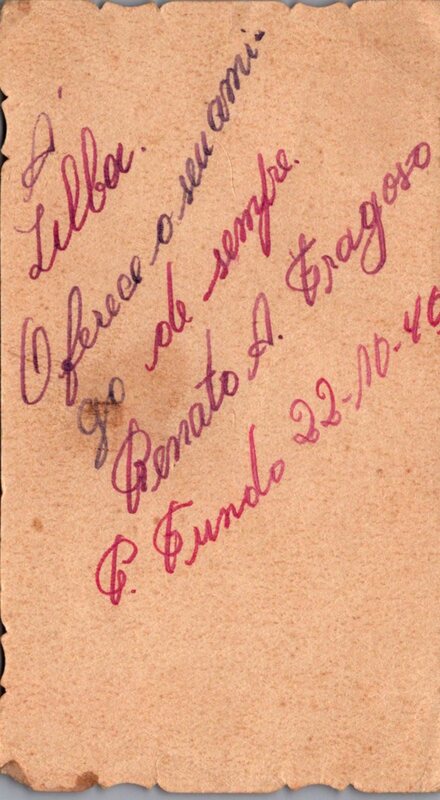 À
Zilba.
Oferece o seu ami-
go de sempre.
Renato A. Fragoso
P. Fundo 22-10-46